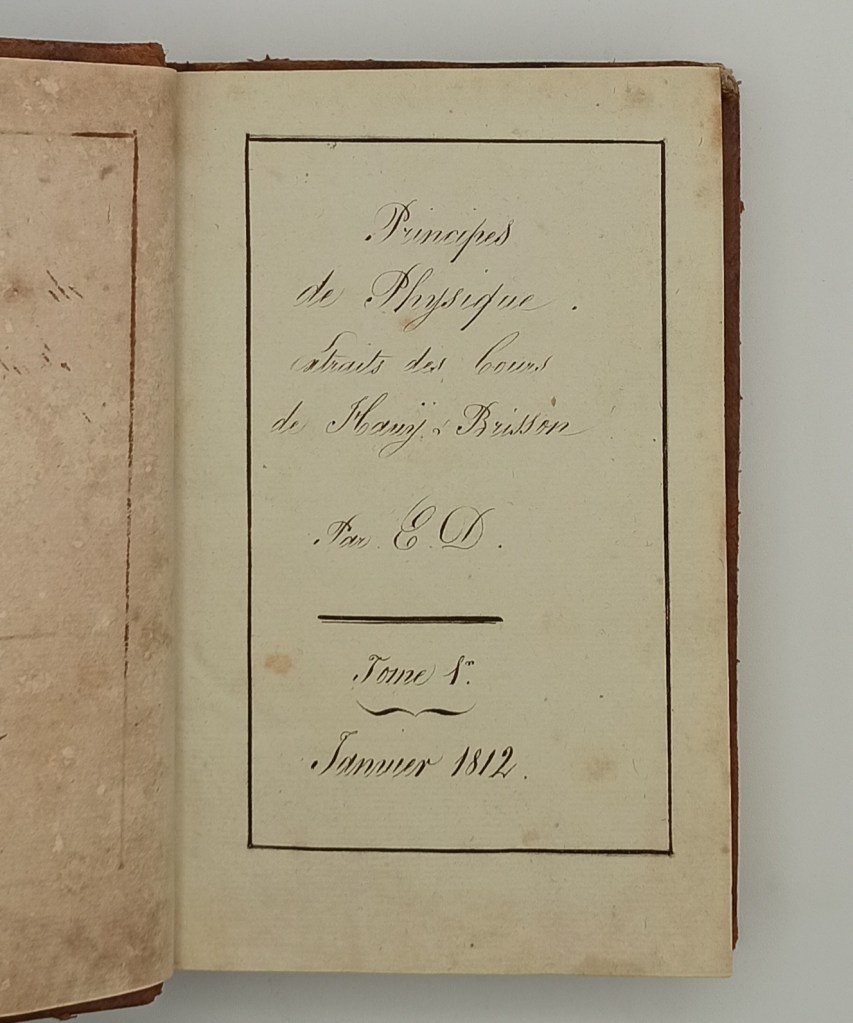 Principes
de Physique.
Extraits des Cours
de Haüy & Brisson
Par E. D.
Tome 1r.
Janvier 1812.